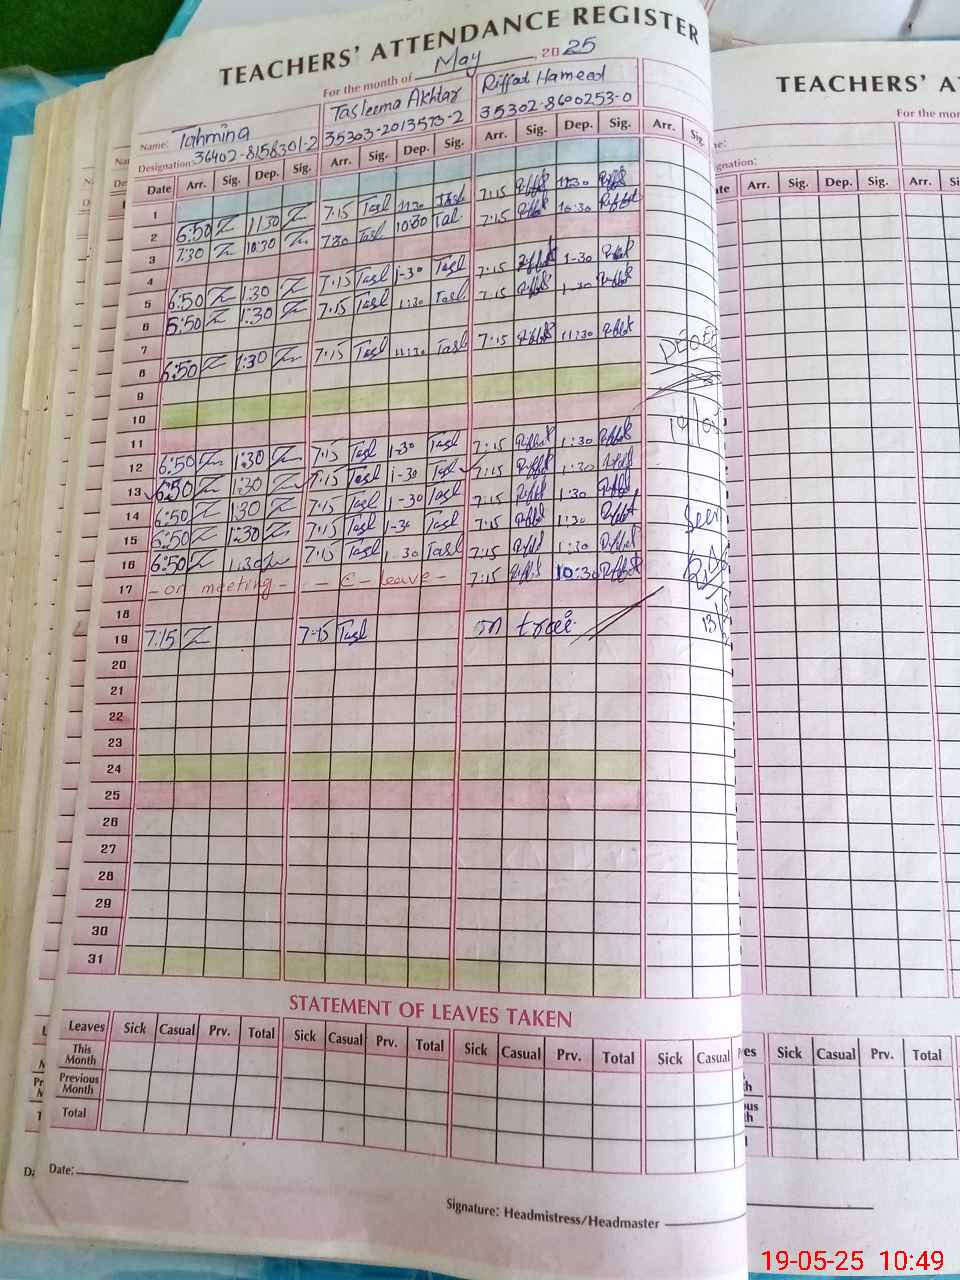 TEACHERS' ATTENDANCE REGISTER
For the month of May, 2025
Name: Tahmina Tasleema Akhtar Riffat Hameed
Designation: 36402-8158301-2 35303-2013573-2 35302-8600253-0
Date Arr. Sig. Dep. Sig. Arr. Sig. Dep. Sig. Arr. Sig. Dep. Sig. Arr. Sig.
1
2 6:50 11:30 7:15 Tasl 11:30 Tasl 7:15 11:30
3 7:30 10:30 7:30 Tasl 10:30 Tasl 7:15 10:30
4
5 6:50 1:30 7:15 Tasl 1-30 Tasl 7:15 1-30
6 6:50 1:30 7:15 Tasl 1:30 Tasl 7:15 1-30
7
8 6:50 1:30 7:15 Tasl 11:30 Tasl 7:15 11:30
9
10
11
12 6:50 1:30 7:15 Tasl 1-30 Tasl 7:15 1:30
13 6:50 1:30 7:15 Tasl 1-30 Tasl 7:15 1:30
14 6:50 1:30 7:15 Tasl 1-30 Tasl 7:15 1:30
15 6:50 1:30 7:15 Tasl 1-30 Tasl 7:15 1:30
16 6:50 1:30 7:15 Tasl 1-30 Tasl 7:15 1:30
17 - on meeting - - C - leave - 7:15 10:30
18
19 7:15 7-15 Tasl
20
21
22
23
24
25
26
27
28
29
30
31
STATEMENT OF LEAVES TAKEN
Leaves Sick Casual Prv. Total Sick Casual Prv. Total Sick Casual Prv. Total Sick Casual
This Month
Previous Month
Total
Date:
Signature: Headmistress/Headmaster
TEACHERS' AT
For the mon
Arr. Sig. Dep. Sig. Arr.
Sick Casual Prv. Total
19-05-25 10:49